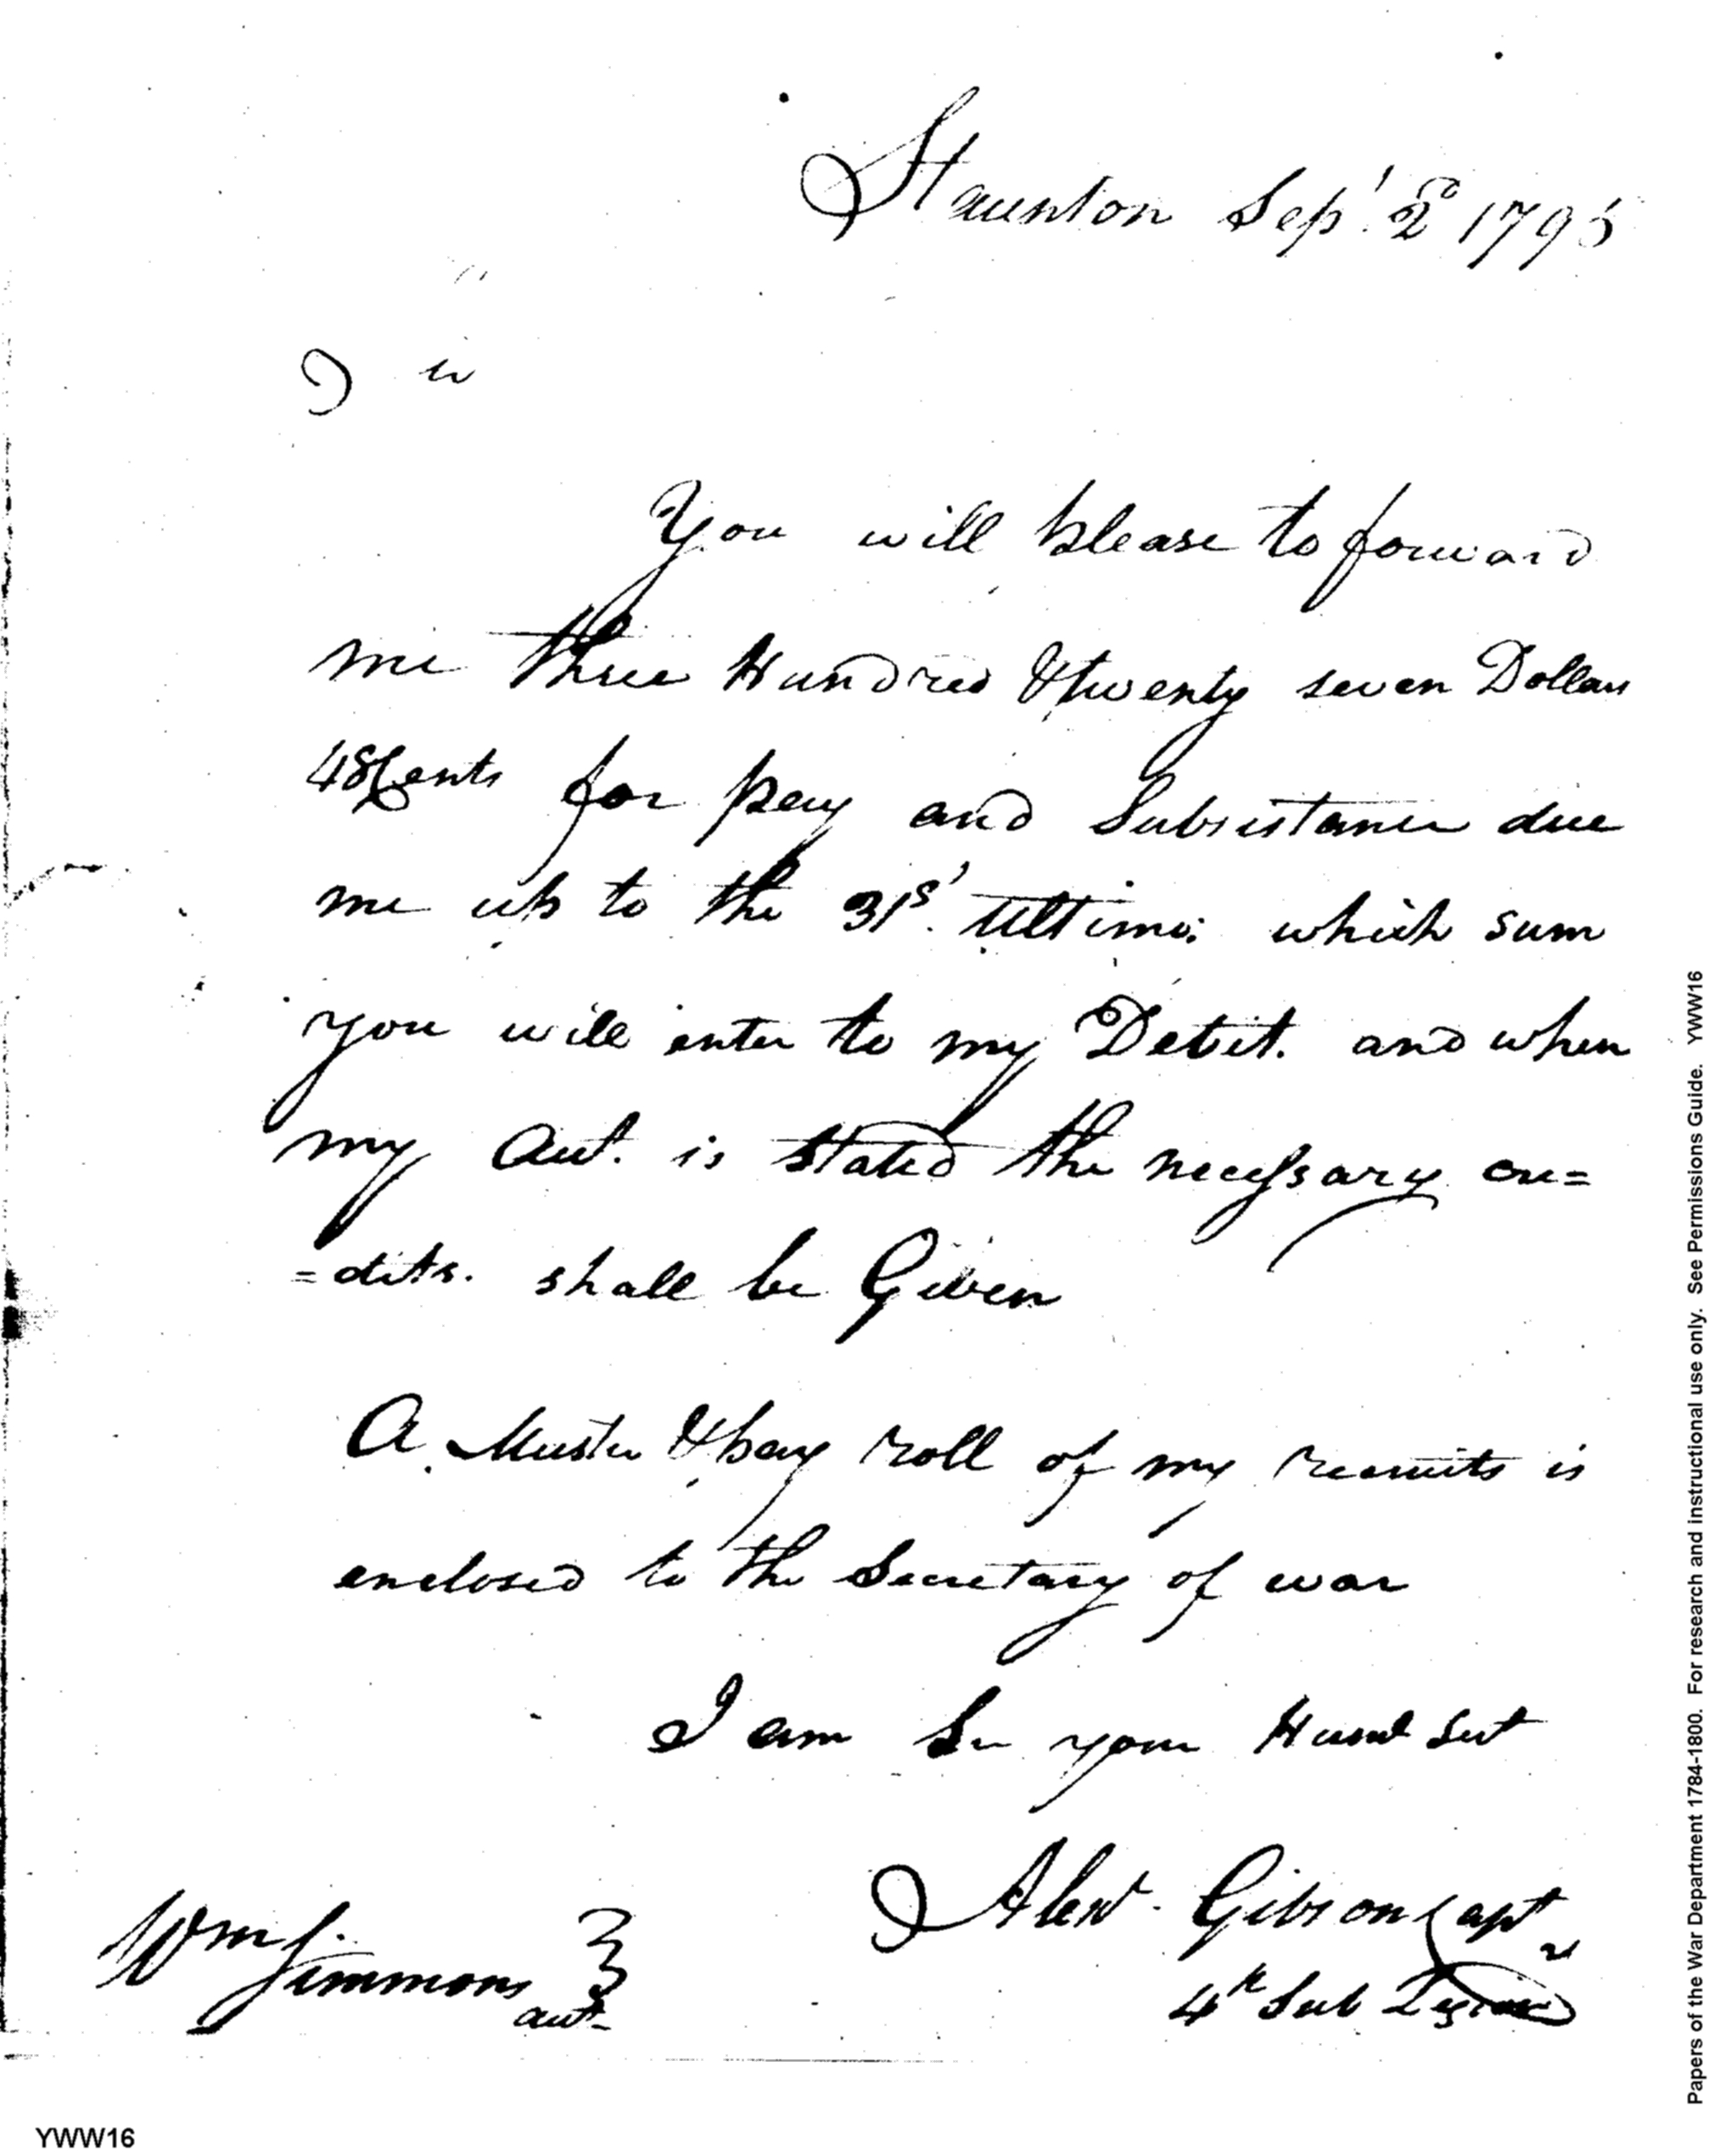 Staunton Sept. 2d 1795
Sir
You will please to forward
me three Hundred & twenty seven Dollars
48 Cents for pay and Subsistance due
me up to the 31st. Ultimo; which sum
you will enter to my Debit. and when
my Acct. is stated the necessary cre=
=dits. shall be Given
A Muster & pay roll of my recruits is
enclosed to the Secretary of war
I am Sir your Humbl Sert
Alexr. Gibson Capt
4th Sub Legion
Wm Simmons
acct.
Papers of the War Department 1784-1800. For research and instructional use only. See Permissions Guide. YWW16
YWW16